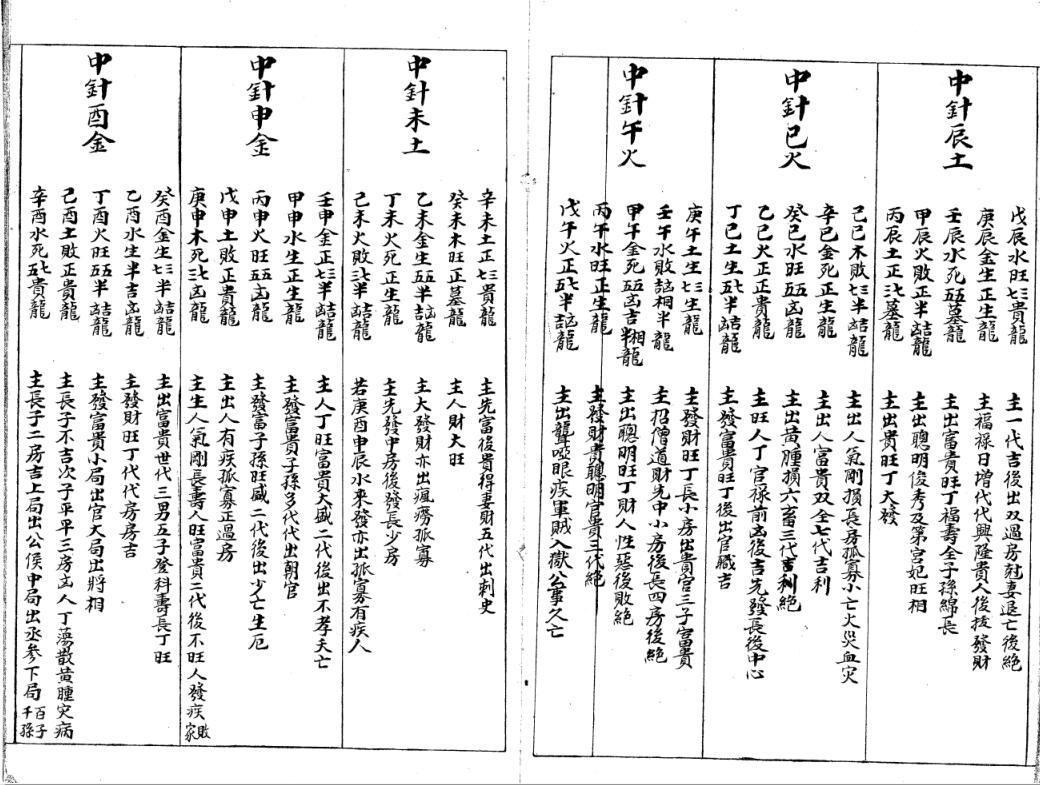 中針辰土
戊辰水旺七三貴龍 主一代吉後出双過房尅妻退亡後絕
庚辰金生正生龍 主福祿日增代代興隆貴人後拔發財
壬辰水死五五墓龍 主出富貴旺丁福壽全子孫綿長
甲辰火敗正半龍 主出聰明俊秀及第宮妃旺相
丙辰土正三七墓龍 主出貴旺丁大發
中針巳火
己巳木敗七三半龍 主出人氣剛損長房孤寡小亡火災血灾
辛巳金死正生龍 主出人富貴双全七代吉利
癸巳水旺五五凶龍 主出黄腫損六畜三代吉利絕
乙巳火正正貴龍 主旺人丁官祿前凶後吉先發長後中心
丁巳土生五七半龍 主發富貴旺丁後出官職吉
中針午火
庚午土生七三生龍 主發財旺丁長小房出貴官三子富貴
壬午水敗相半龍 主招僧道財先中小房後長四房後絕
甲午金死五五凶吉半相龍 主出聰明旺丁財人性惡後敗絕
丙午水旺正生龍 主發財貴聰明官貴三代絕
戊午火正五七半龍 主出聾啞眼疾軍賊入獄公事久亡
中針未土
辛未土正七三貴龍 主先富後貴得妻財五代出刺史
癸未木旺正墓龍 主人財大旺
乙未金生五五半龍 主大發財亦出瘋癆孤寡
丁未火死正生龍 主先發中房後發長少房
己未火敗三七半龍 若庚酉申辰水來發亦出孤寡有疾人
中針申金
壬申金正七三半龍 主人丁旺富貴大盛二代後出不孝夭亡
甲申水生正生龍 主發富貴子孫多代代出朝官
丙申火旺五五凶龍 主發富子孫旺盛二代後出少亡生厄
戊申土敗正貴龍 主出人有疾孤寡正過房
庚申木死三七凶龍 主生人氣剛長壽人旺富貴二代後不旺人發疾敗家
中針酉金
癸酉金生七三半龍 主出富貴世代三男五子登科壽長丁旺
乙酉水生半吉凶龍 主發財旺丁代代房房吉
丁酉火旺五五半龍 主發富貴小局出官大局出將相
己酉土敗正貴龍 主長子不吉次子平平三房出人丁蕩散黄腫灾病
辛酉水死五七貴龍 主長子二房吉上局出公侯中局出丞參下局百子千孫